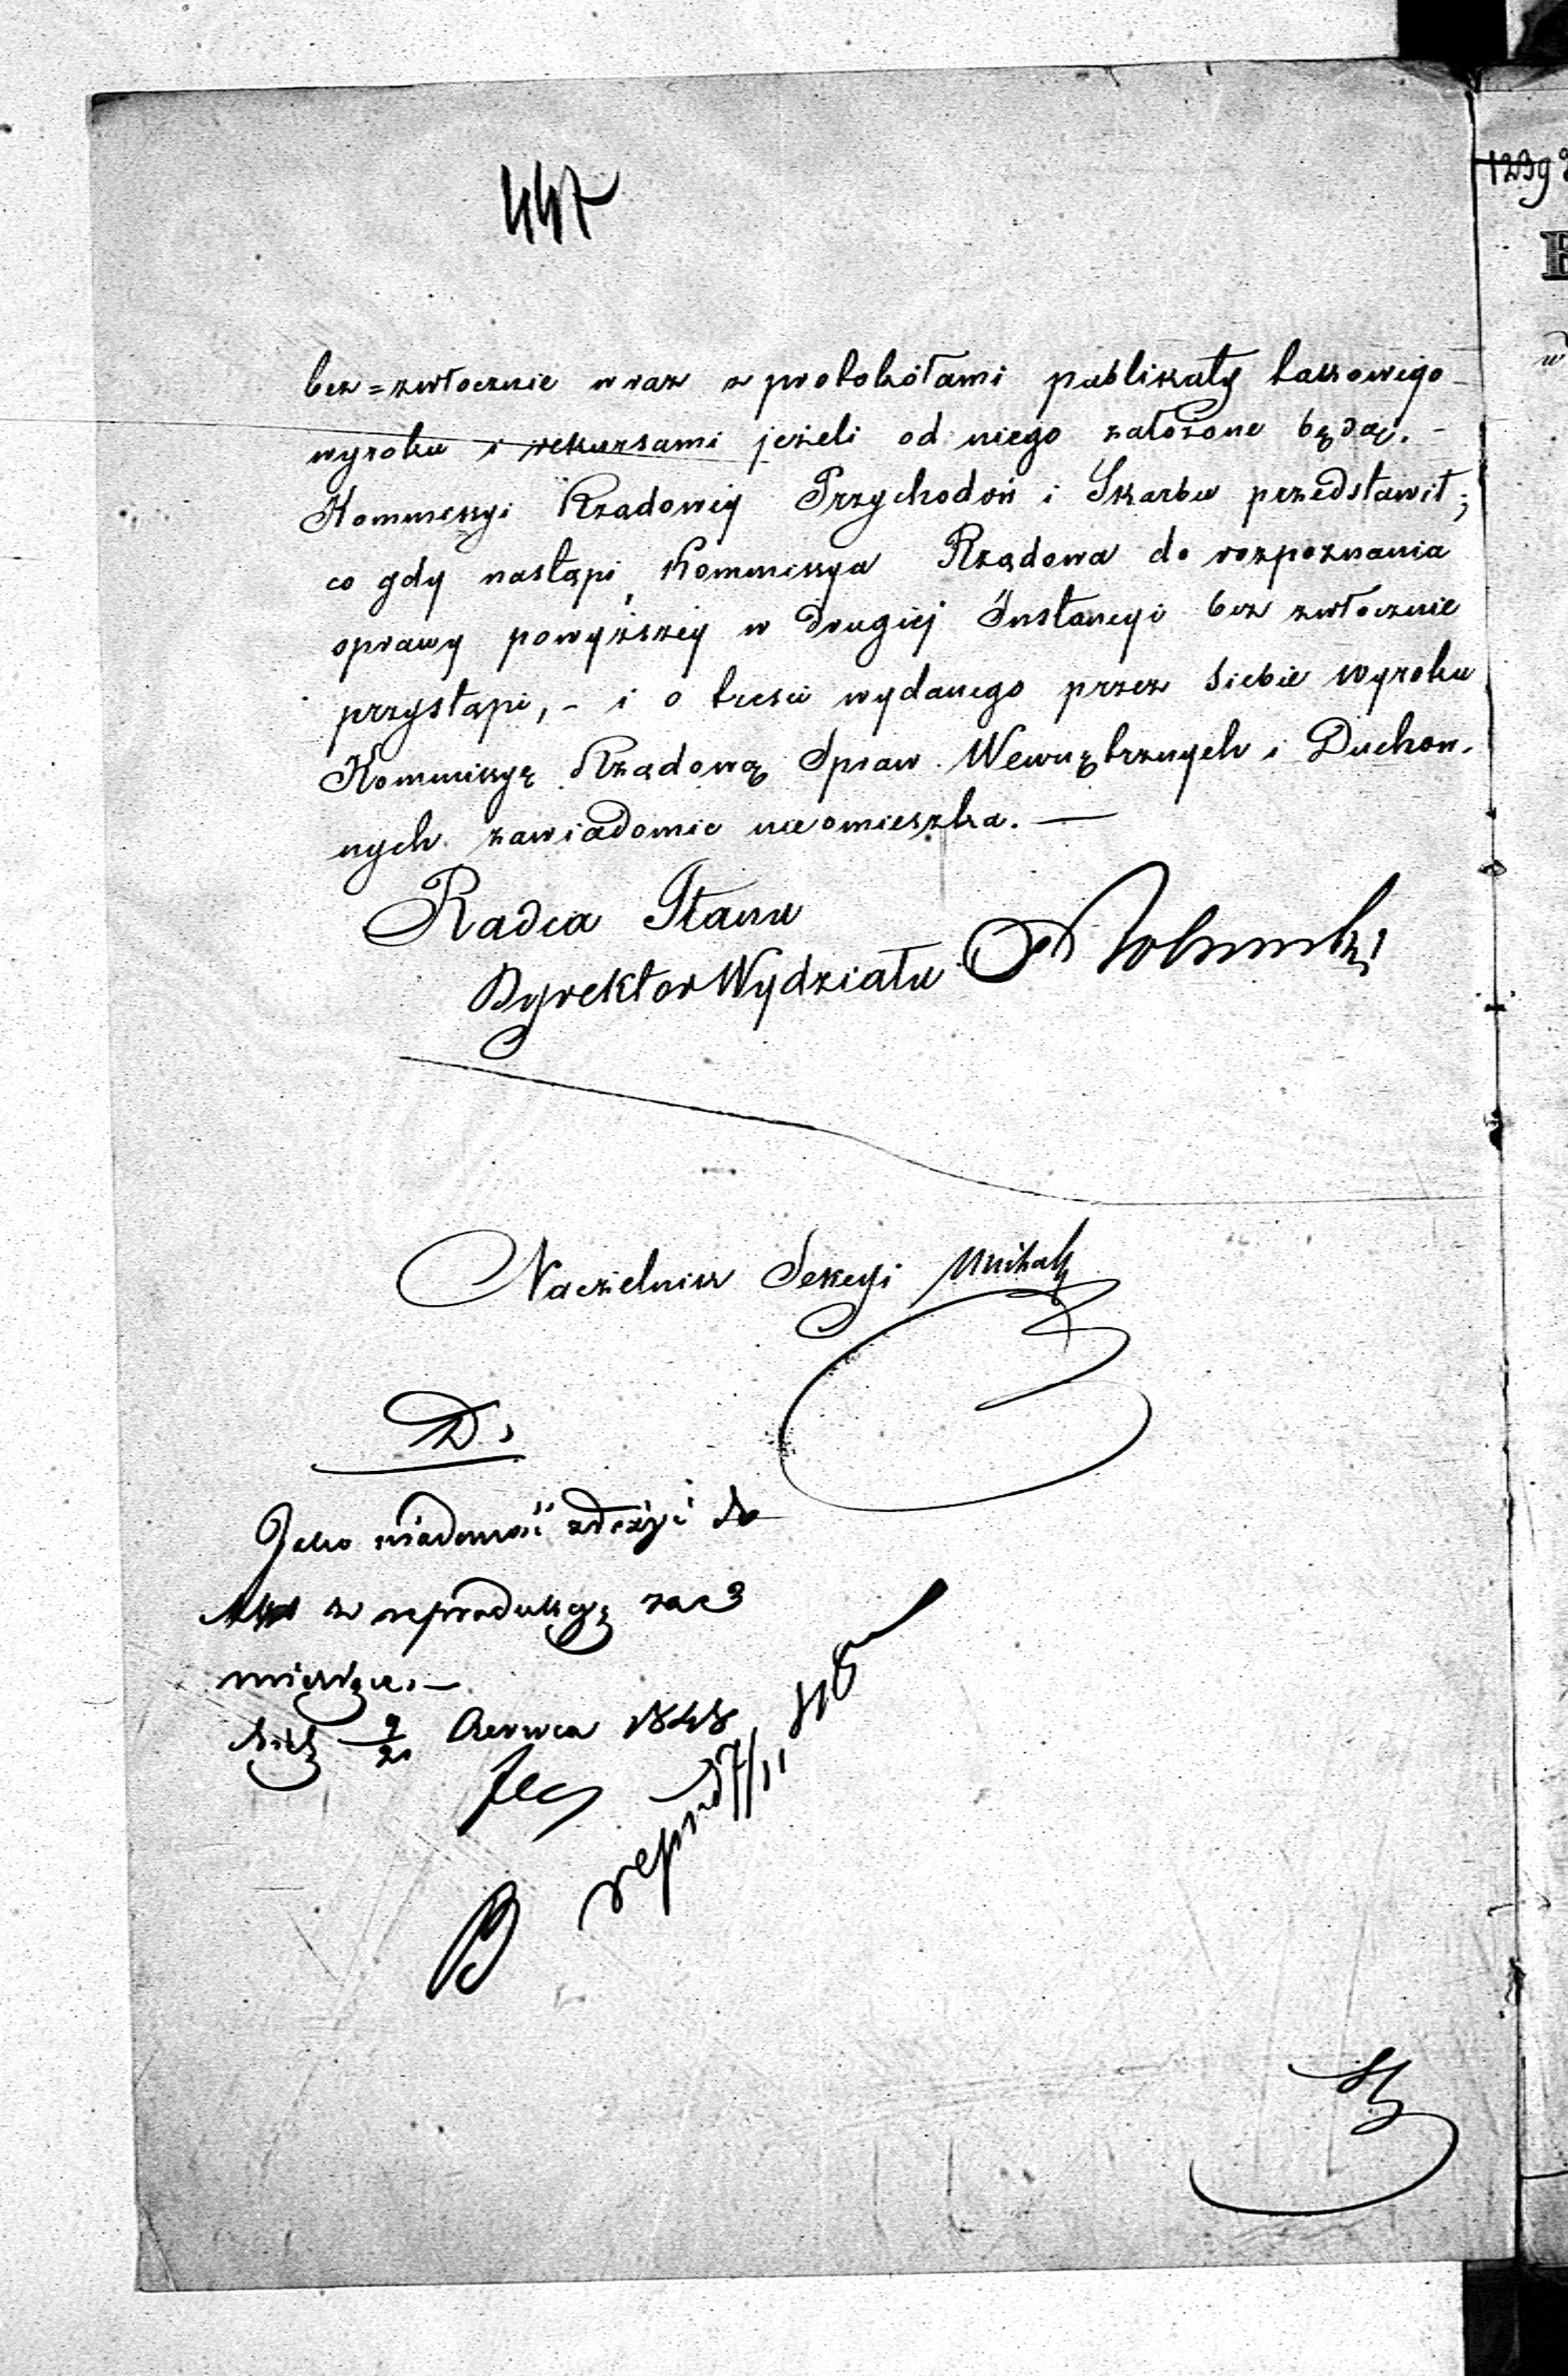 447
bez=zwłocznie wraz z protokółami publikaty takowego
wyroku i rekursami jeżeli od niego założone będą. -
Kommissyi Rządowey Przychodów i Skarbu przedstawił;
co gdy nastąpi, Kommissya Rządowa do rozpoznania
sprawy powyższey w drugiej Instancyi bez zwłocznie
przystąpi, - i o treści wydanego przez siebie wyroku
Kommissyę Rządową Spraw Wewnętrznych i Duchow.
nych zawiadomić nieomieszka. —
Radca Stanu
Dyrektor Wydziału
Naczelnik Sekcyi
D.
Jako wiadomość złożyć do
z reprodukcyą za 3
miesiące. —
9/21 Czerwca 1848
reprod 7/11 48
B
1239